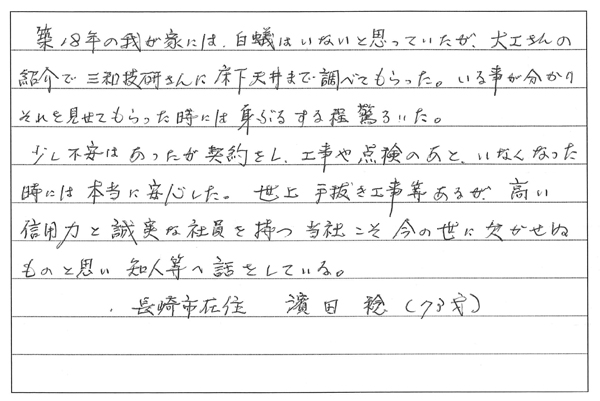 築18年の我が家には、白蟻はいないと思っていたが、大工さんの
紹介で三和技研さんに床下天井まで調べてもらった。いる事が分かり
それを見せてもらった時には身ぶるする程驚ろいた。
少し不安はあったが契約をし、工事や点検のあと、いなくなった
時には本当に安心した。世上手抜き工事等あるが、高い
信用力と誠実な社員を持つ当社こそ今の世に欠かせぬ
ものと思い知人等へ話をしている。
長崎市在住 濱田 稔(73才)